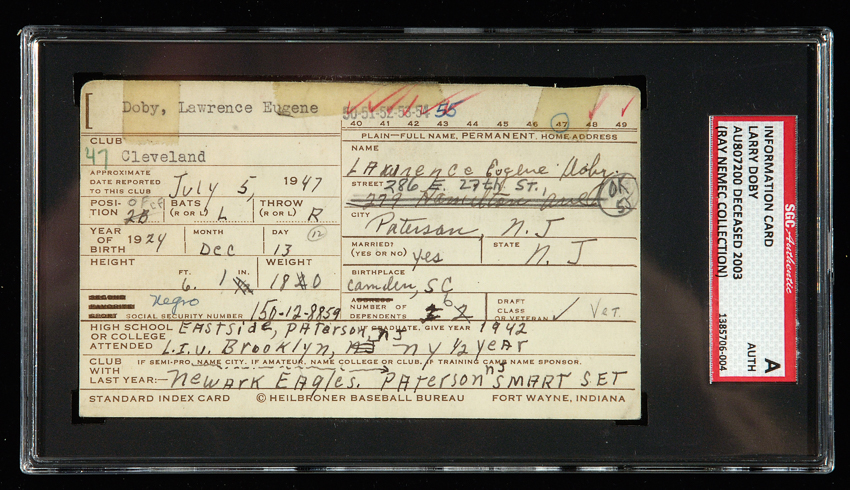 Doby, Lawrence Eugene
50-51-52-53-54 55
40 41 42 43 44 45 46 47 48 49
CLUB
47 Cleveland
APPROXIMATE DATE REPORTED TO THIS CLUB July 5, 1947
POSITION 2B OF CF BATS (R OR L) L THROW (R OR L) R
YEAR OF BIRTH 1924 MONTH Dec DAY 13 12
HEIGHT WEIGHT
FT. 6 IN. 1 180
Negro
SOCIAL SECURITY NUMBER 150-12-8859
PLAIN—FULL NAME, PERMANENT, HOME ADDRESS
NAME
LAwrence Eugene Doby
STREET 286 E. 27th ST.,
279 Hamilton OK
CITY
Paterson, N. J
MARRIED? (YES OR NO) yes STATE N. J
BIRTHPLACE
Camden, SC
NUMBER OF DEPENDENTS 6 DRAFT CLASS OR VETERAN ✓ Vet.
HIGH SCHOOL OR COLLEGE ATTENDED EASTSIDE, PATERSON, NJ GRADUATE, GIVE YEAR 1942
L.I.U. Brooklyn, NY ½ year
CLUB WITH LAST YEAR:— IF SEMI-PRO, NAME CITY. IF AMATEUR, NAME COLLEGE OR CLUB. IF TRAINING CAMP NAME SPONSOR.
Newark Eagles. PATERSON NJ SMART SET
STANDARD INDEX CARD © HEILBRONER BASEBALL BUREAU FORT WAYNE, INDIANA
SGC Authentic
INFORMATION CARD
LARRY DOBY
AU807200 DECEASED 2003
(RAY NEMEC COLLECTION)
A
AUTH
1385706-004